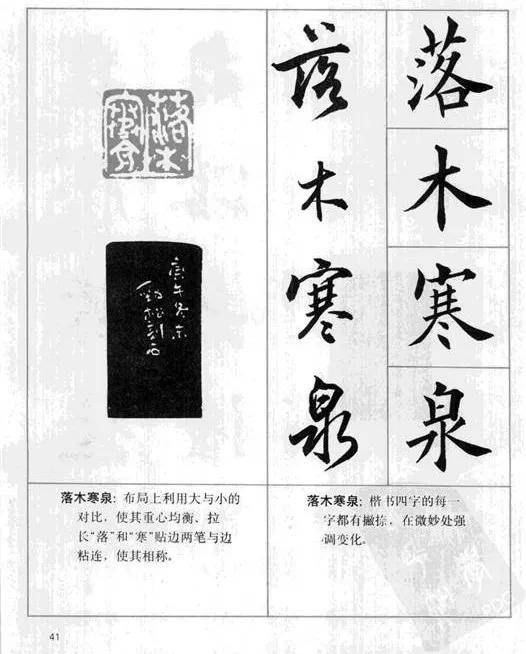 落木
寒泉
庚午冬末
刻石
落木寒泉
落木寒泉
落木寒泉：布局上利用大与小的
对比，使其重心均衡、拉
长“落”和“寒”贴边两笔与边
粘连，使其相称。
落木寒泉：楷书四字的每一
字都有撇捺，在微妙处强
调变化。
41